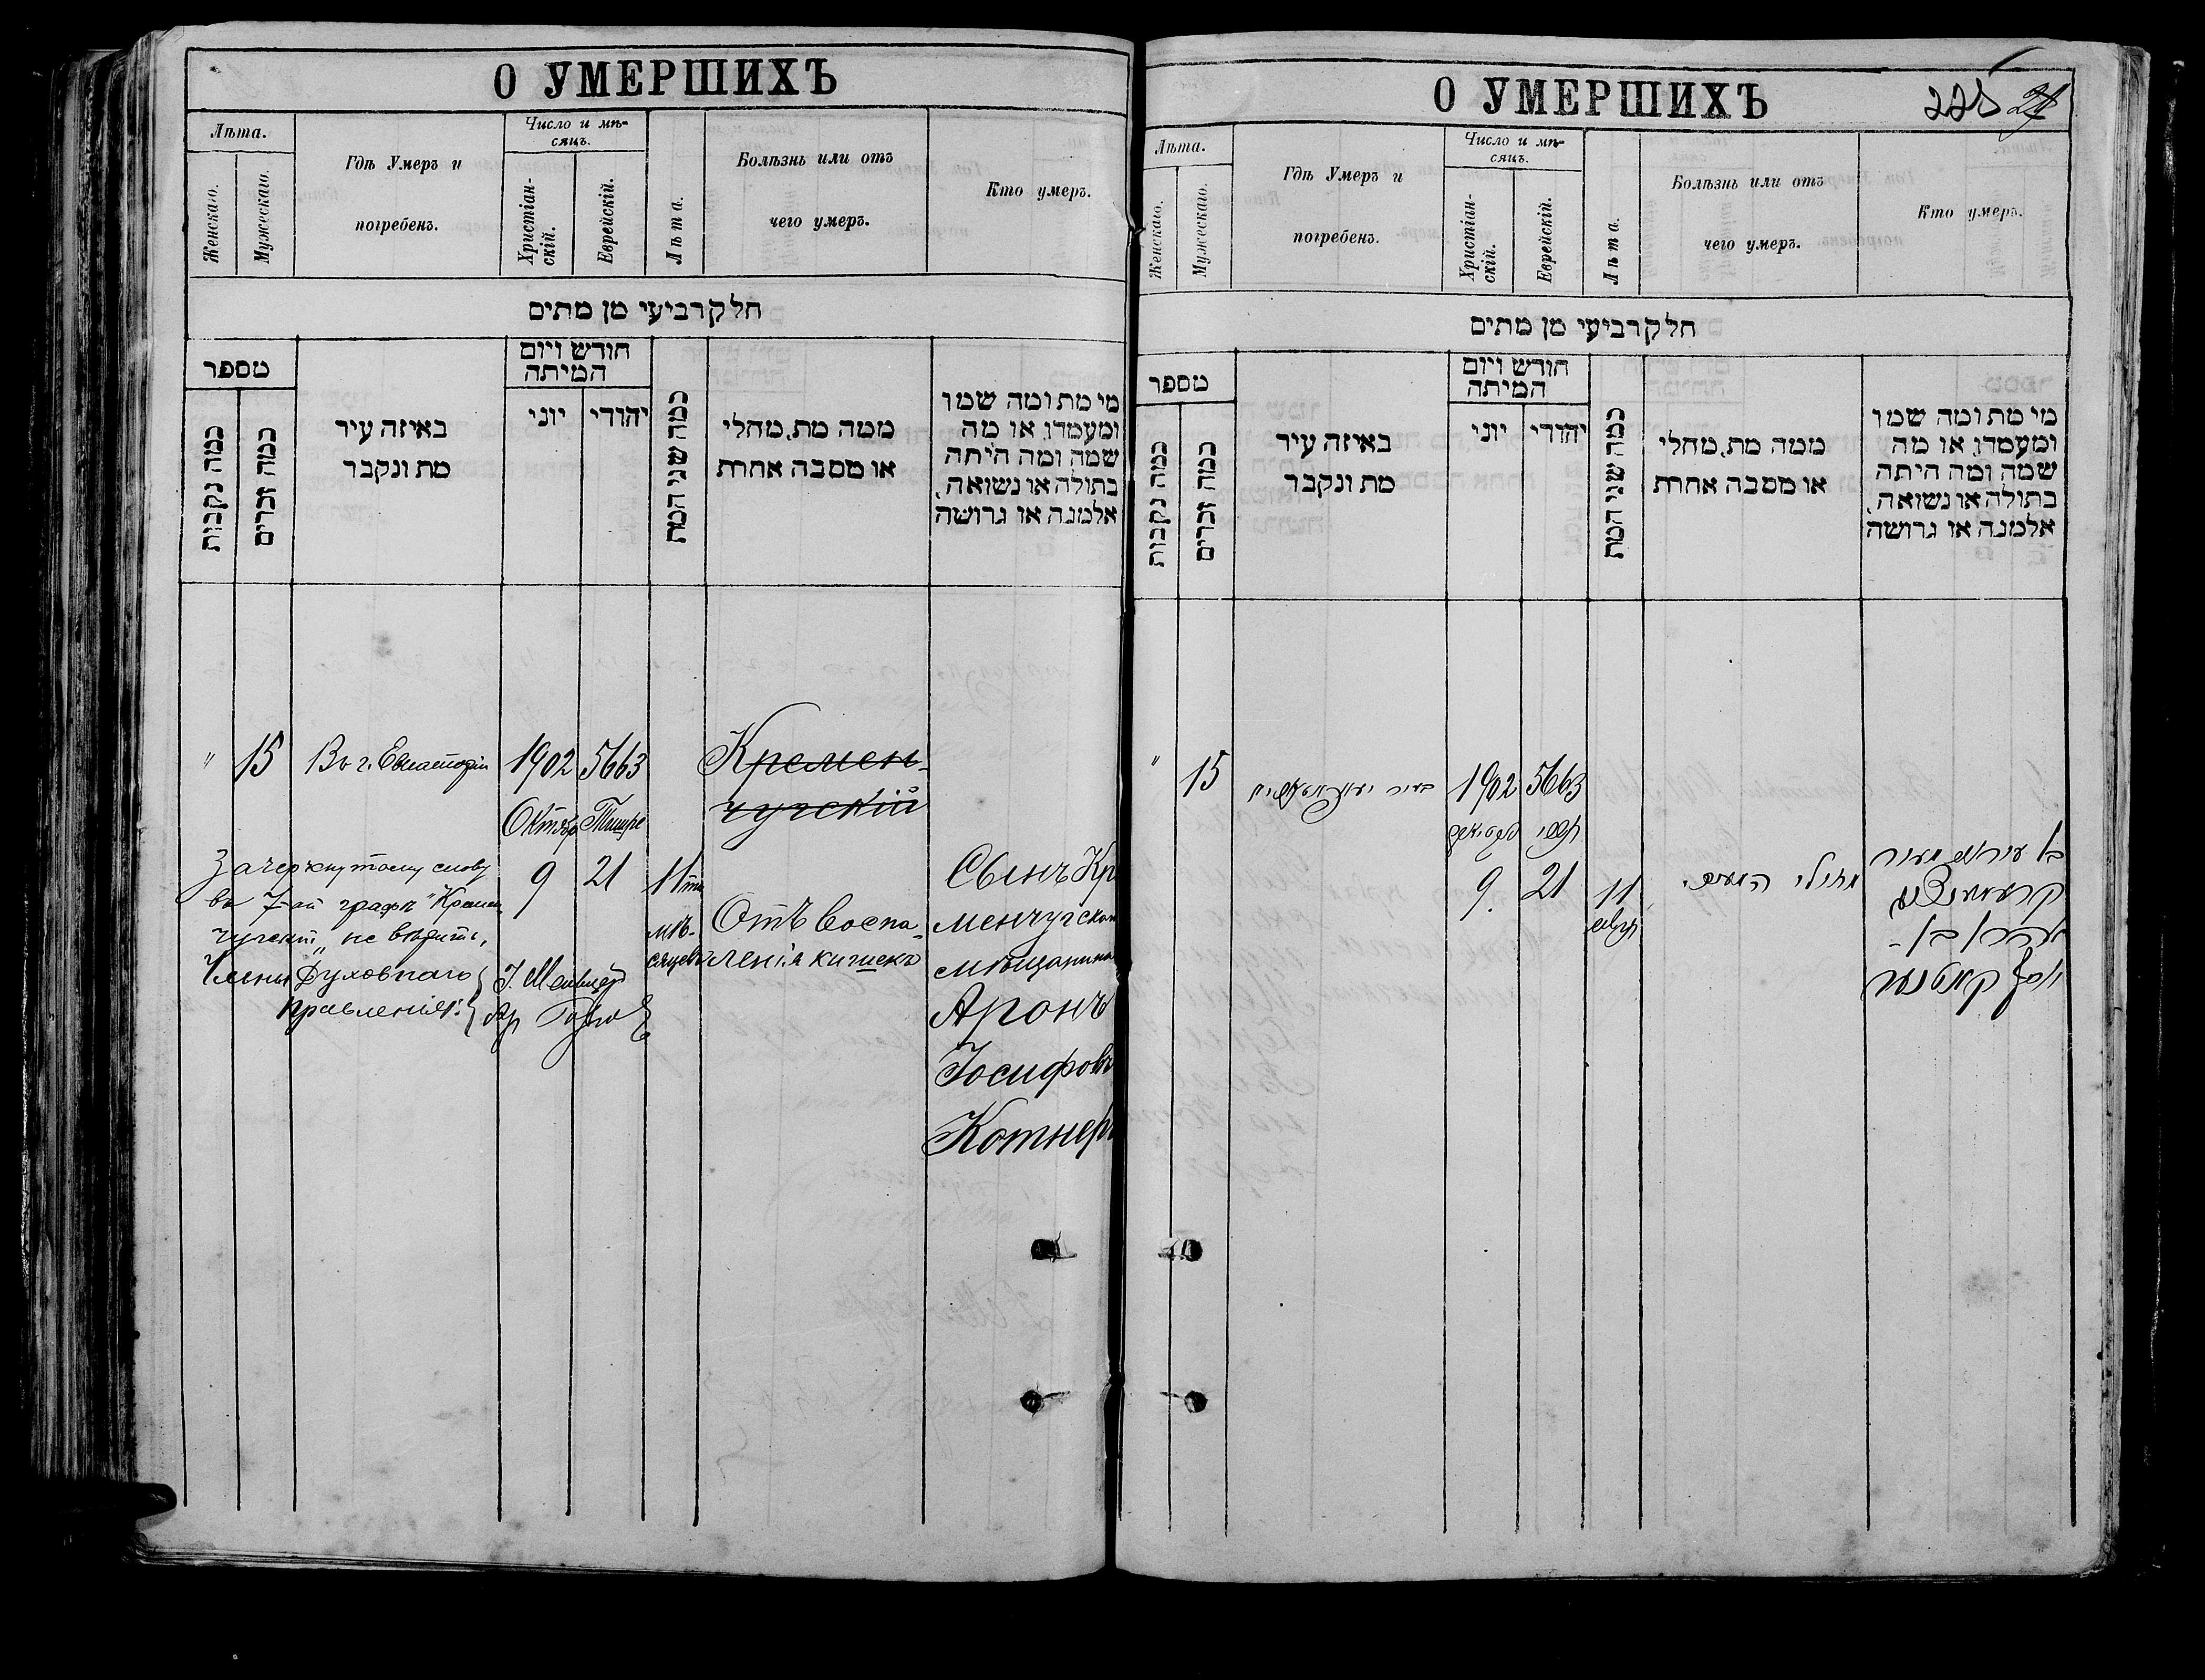 О УМЕРШИХЪ
Лѣта.
Женскаго.
Мужескаго.
Гдѣ Умеръ и
погребенъ.
Число и мѣ-
сяцъ.
Христіан-
скій.
Еврейскій.
Лѣта.
Болѣзнь или отъ
чего умеръ.
Кто умеръ.
חלק רביעי מן מתים
מספר
כמה נקבות
כמה זכרים
באיזה עיר
מת ונקבר
חודש ויום
המיתה
יוני
יהודי
כמה שני המת
ממה מת, מחלי
או מסבה אחרת
מי מת ומה שמו
ומעמדו, או מה
שמה ומה היתה
בתולה או נשואה,
אלמנה או גרושה
" 15 Въ г. Евпаторіи 1902 5663
Октябр Тишре
9 21
11ти
мѣ-
сяцевъ
Кремен-
чугскій
Отъ воспа-
ленія кишекъ
Сынъ Кр
менчугскаго
мѣщанина
Аронъ
Іосифовъ
Котнеръ
Зачеркнутому слову
въ 7-ой графѣ "Кремен
чугскій" не вѣрить,
Члены Духовнаго
правленія:
О УМЕРШИХЪ
225 21
Лѣта.
Женскаго.
Мужескаго.
Гдѣ Умеръ и
погребенъ.
Число и мѣ-
сяцъ.
Христіан-
скій.
Еврейскій.
Лѣта.
Болѣзнь или отъ
чего умеръ.
Кто умеръ.
חלק רביעי מן מתים
מספר
כמה נקבות
כמה זכרים
באיזה עיר
מת ונקבר
חודש ויום
המיתה
יוני
יהודי
כמה שני המת
ממה מת, מחלי
או מסבה אחרת
מי מת ומה שמו
ומעמדו, או מה
שמה ומה היתה
בתולה או נשואה,
אלמנה או גרושה
" 15 בעיר 1902 5663
תשרי
9. 21
11
מחולי המעים.
בן
אהרן בן
יוסף קאטנער